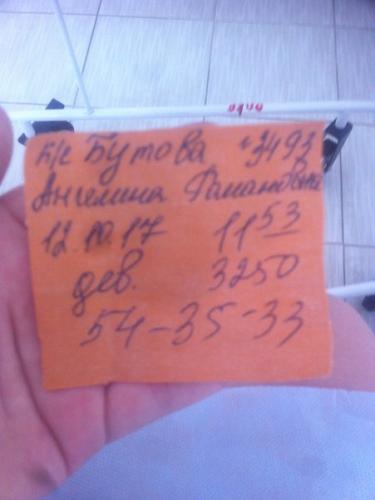 к/с Бутова с 3493
Ангелина Романовна
12.10.17 11 53
дев. 3250
54-35-33